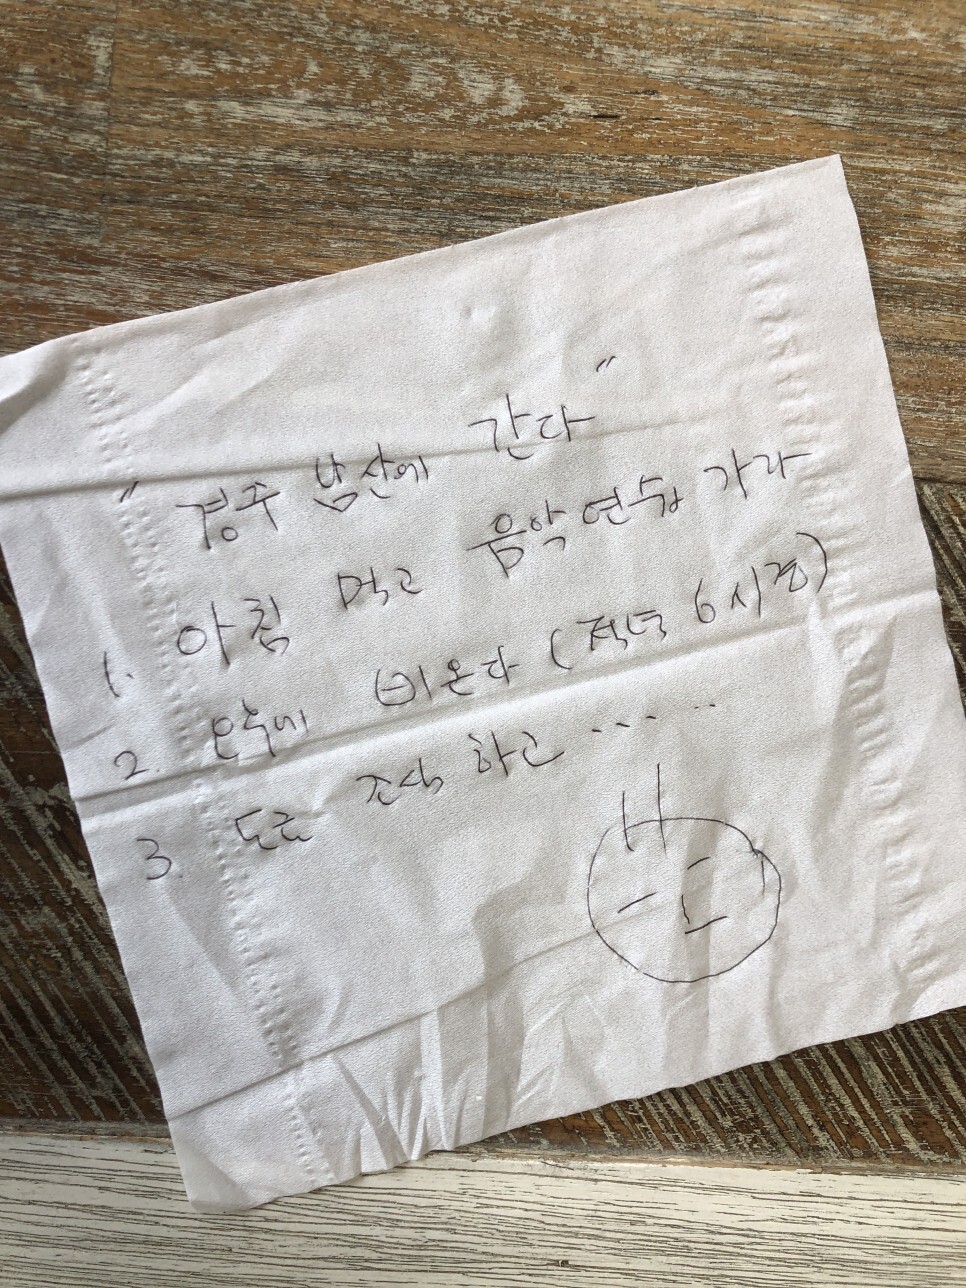 " 경주 남산에 간다 "
1. 아침 먹고 음악연습 가라
2. 오후에 비온다 (저녁 6시경)
3. 도로 조심 하고 ......